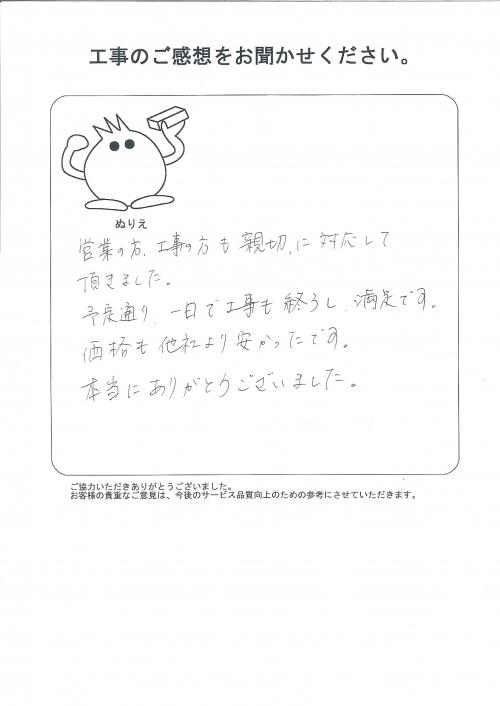 工事のご感想をお聞かせください。
ぬりえ
営業の方、工事の方も親切に対応して
頂きました。
予定通り、一日で工事も終ろし、満足です。
価格も他社より安かったです。
本当にありがとうございました。
ご協力いただきありがとうございました。
お客様の貴重なご意見は、今後のサービス品質向上のための参考にさせていただきます。